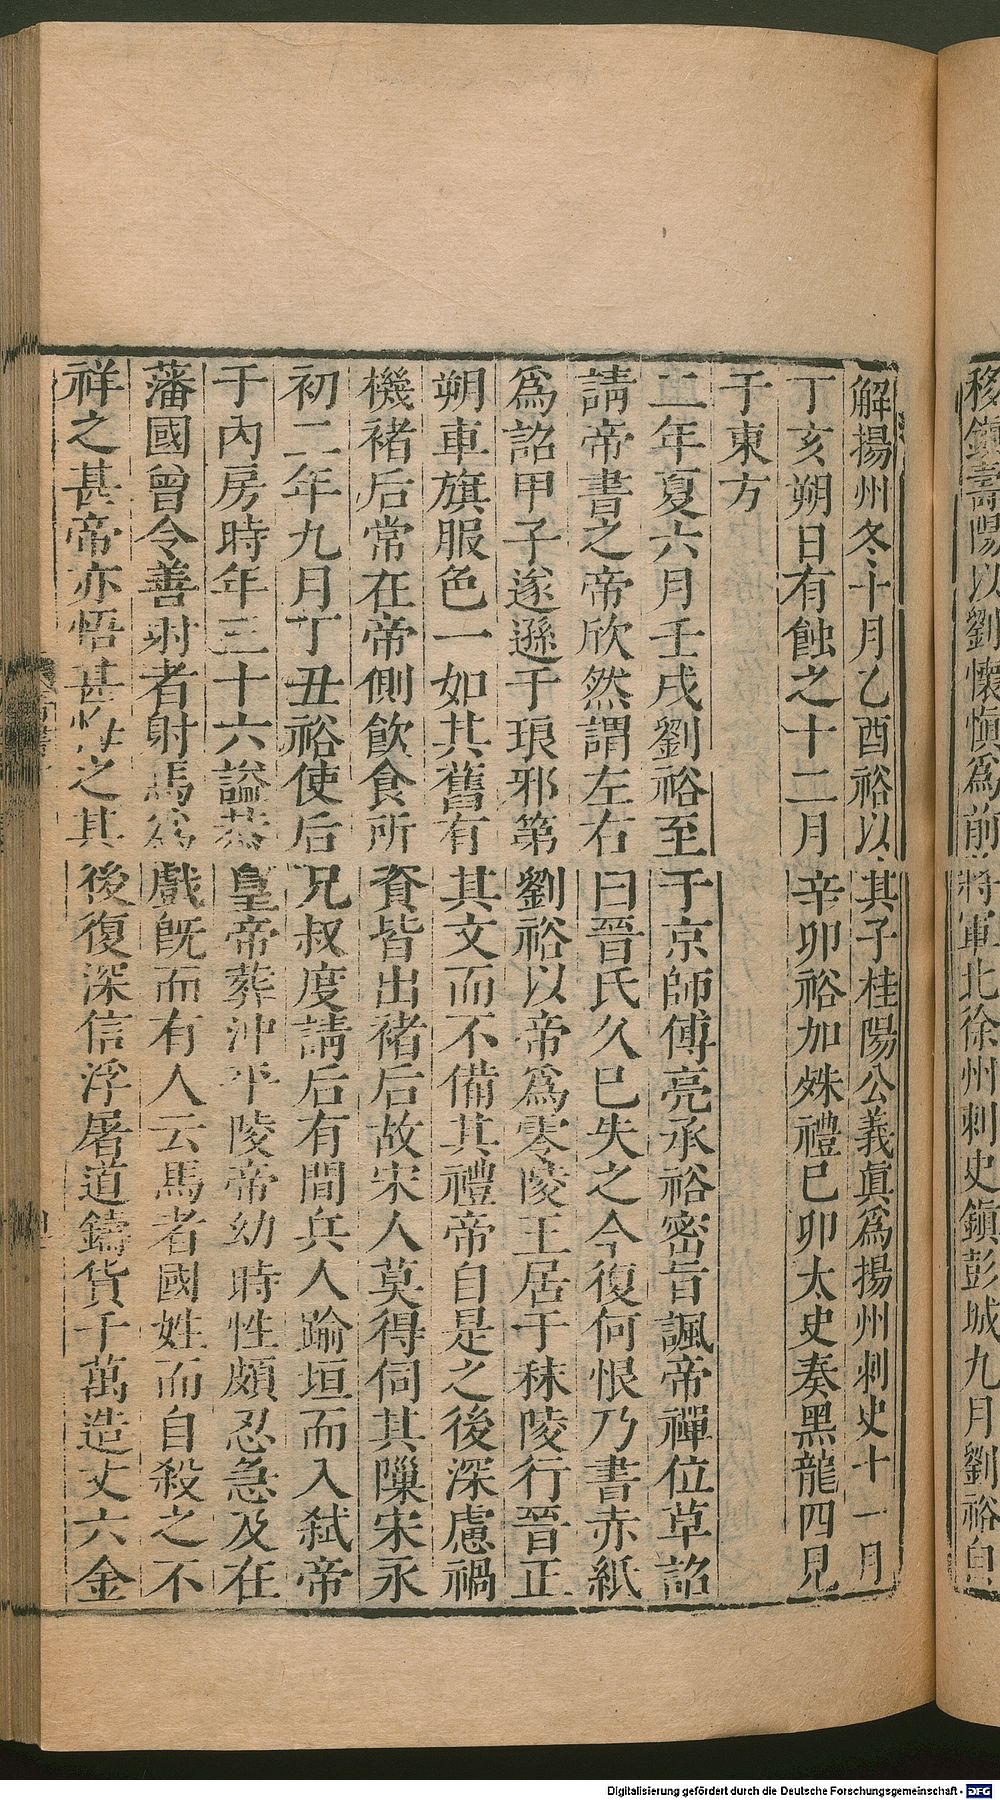 移鎮壽陽以劉懷慎爲前將軍北徐州刺史鎮彭城九月劉裕自
解揚州冬十月乙酉裕以其子桂陽公義眞爲揚州刺史十一月
丁亥朔日有蝕之十二月辛卯裕加殊禮巳卯太史奏黑龍四見
于東方
二年夏六月壬戌劉裕至于京師傅亮承裕密旨諷帝禪位草詔
請帝書之帝欣然謂左右曰晉氏久巳失之今復何恨乃書赤紙
爲詔甲子遂遜于琅邪第劉裕以帝爲零陵王居于秣陵行晉正
朔車旗服色一如其舊有其文而不備其禮帝自是之後深慮禍
機褚后常在帝側飲食所資皆出褚后故宋人莫得伺其隟宋永
初二年九月丁丑裕使后兄叔度請后有間兵人踰垣而入弑帝
于內房時年三十六謚恭皇帝葬沖平陵帝幼時性頗忍急及在
藩國曾令善射者射馬爲戲旣而有人云馬者國姓而自殺之不
祥之甚帝亦悟甚悔之其後復深信浮屠道鑄貨千萬造丈六金
Digitalisierung gefördert durch die Deutsche Forschungsgemeinschaft - DFG